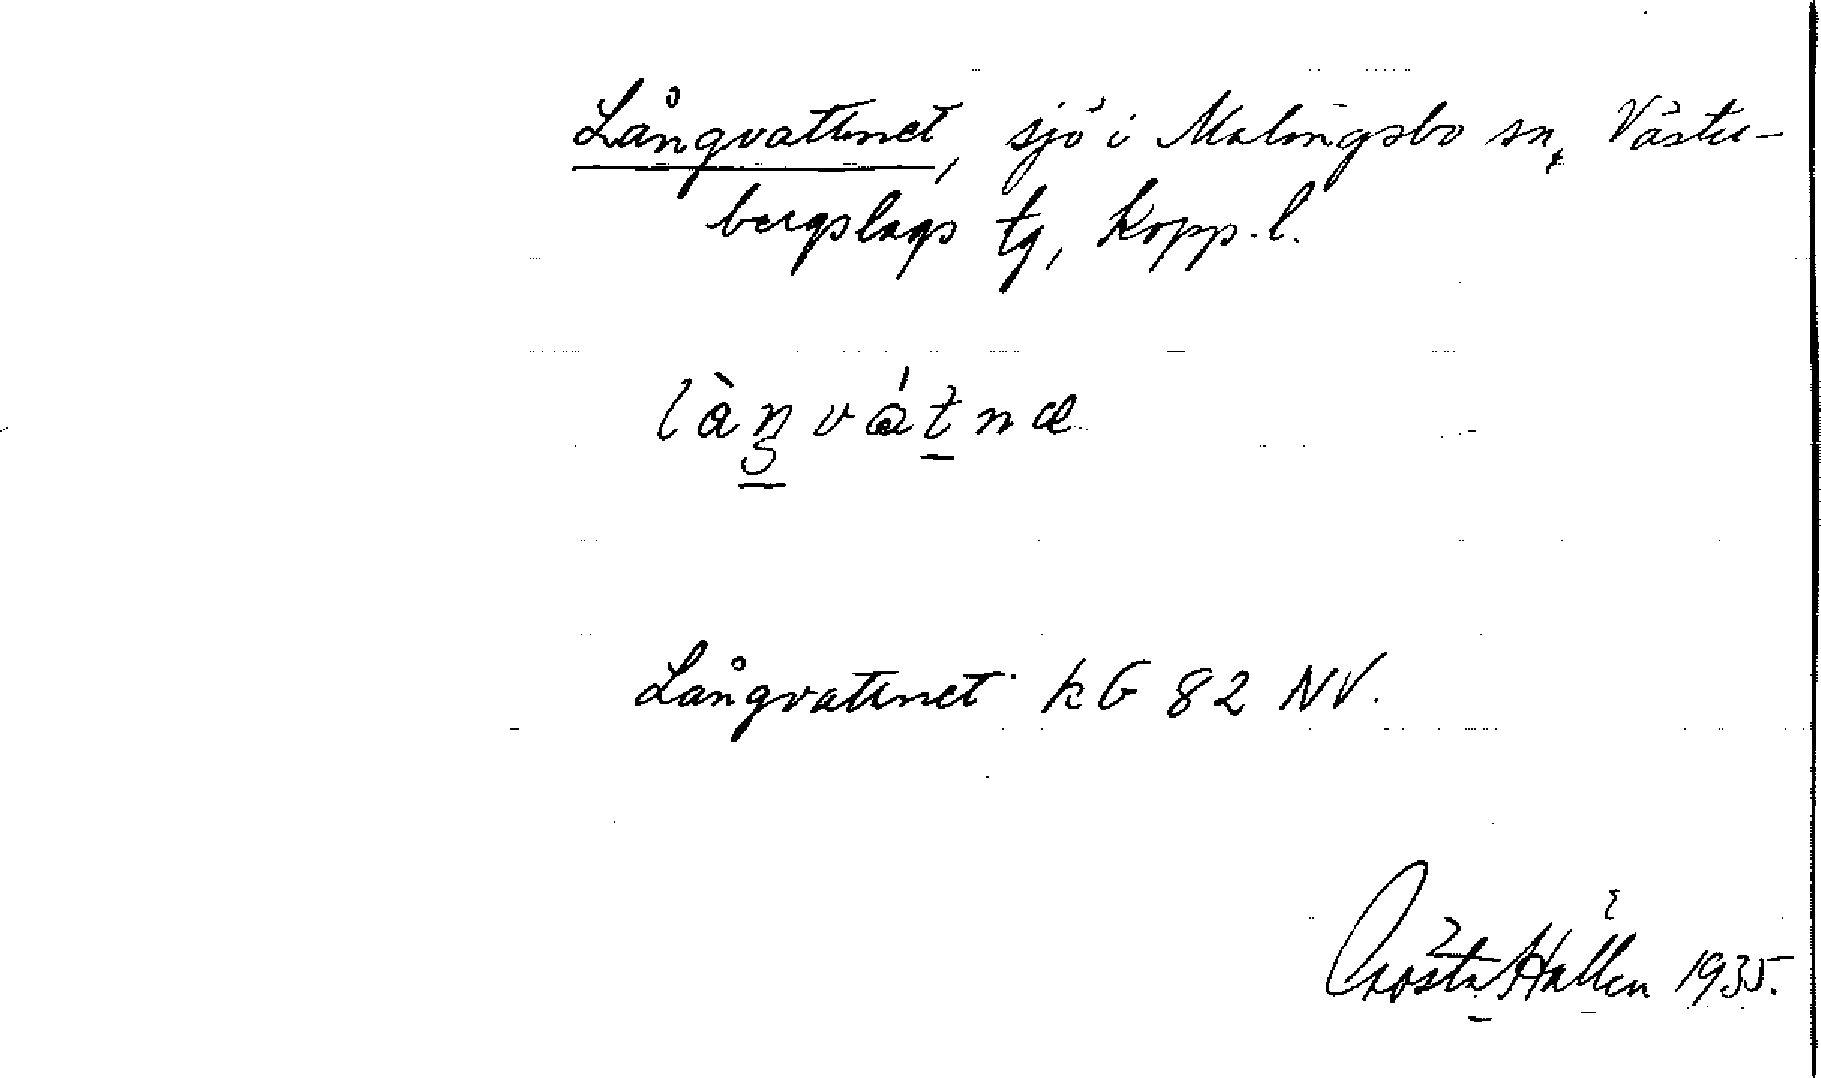 Långvattnet, sjö i Malingsbo sn, Väster-
bergslags tg, Kopp. l.
làŋvátnæ
Långvattnet kG 82 NV.
Gösta Hallén 1935.